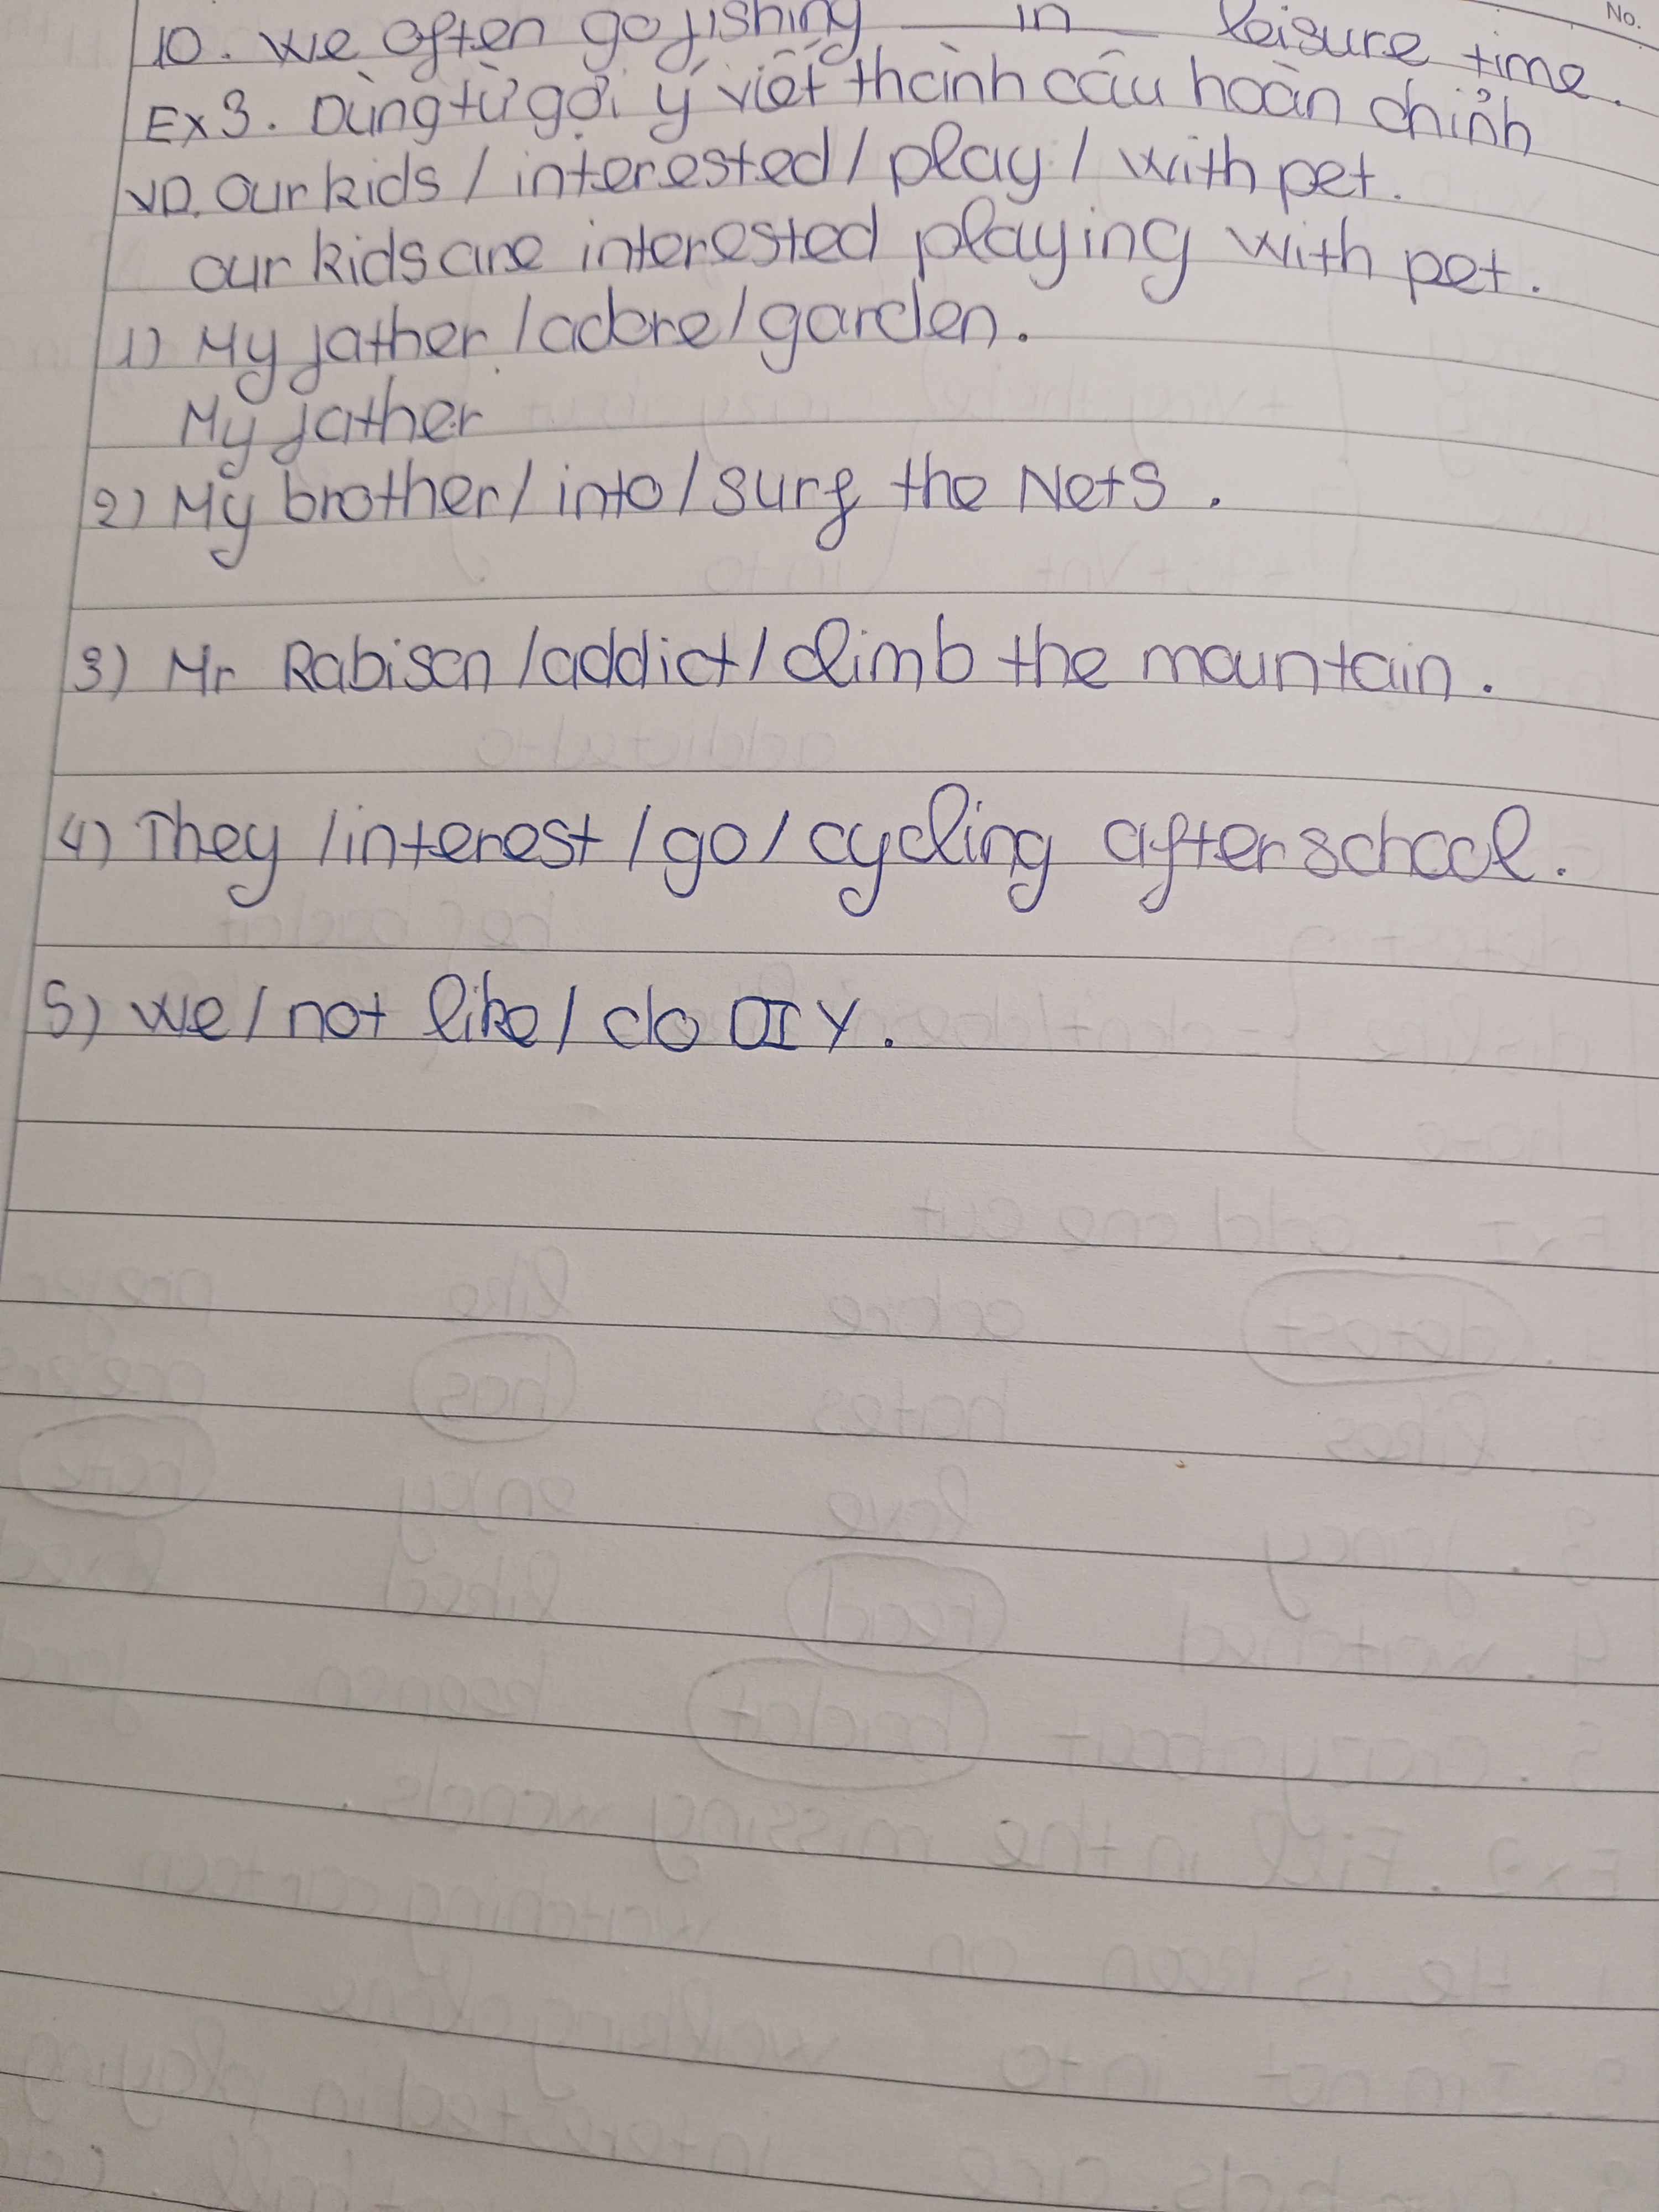 No.
10. We often go fishing ___ in ___ leisure time.
Ex3. Dùng từ gợi ý viết thành câu hoàn chỉnh
VD. Our kids / interested / play / with pet.
our kids are interested playing with pet.
1) My father / adore / garden.
My father
2) My brother / into / surf the Nets.
3) Mr Rabison / addict / climb the mountain.
4) They / interest / go / cycling after school.
5) We / not like / do DIY.